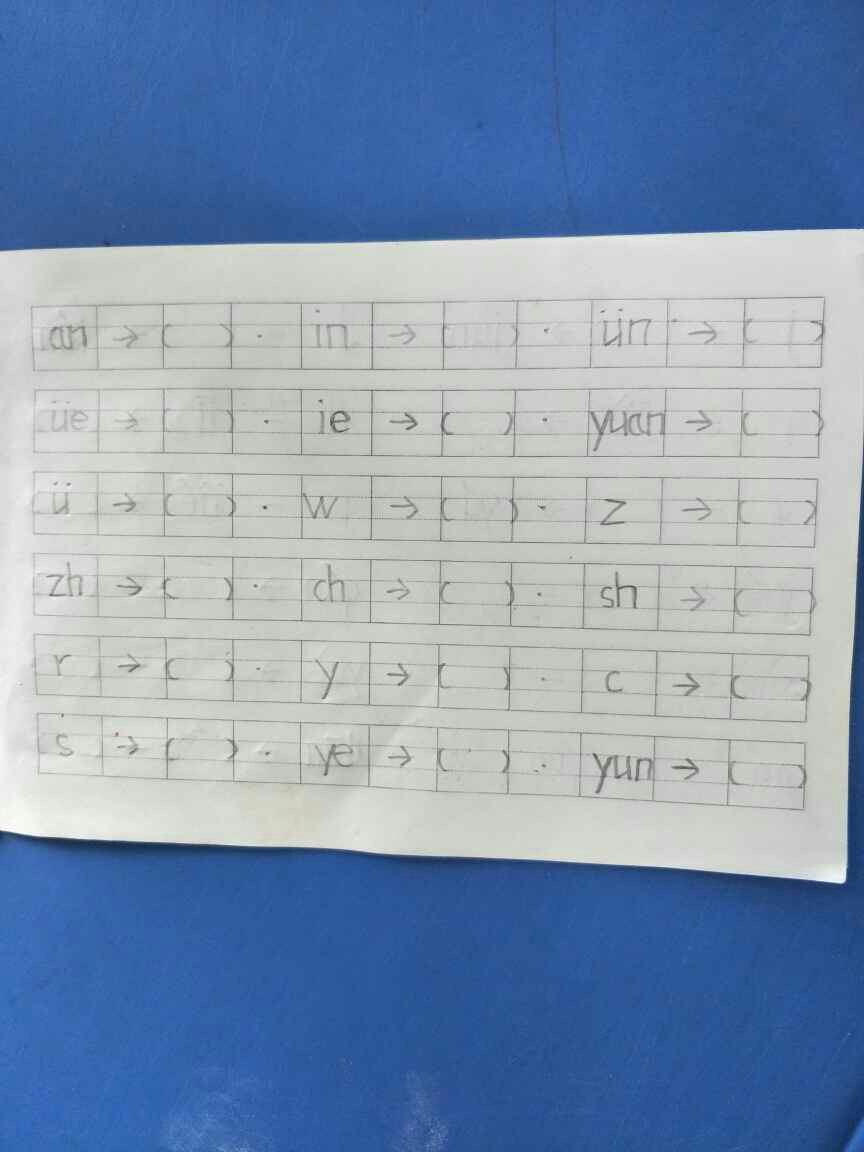 an → ( ) · in → ( ) · ün → ( )
üe → ( ) · ie → ( ) · yuan → ( )
ü → ( ) · w → ( ) · z → ( )
zh → ( ) · ch → ( ) · sh → ( )
r → ( ) · y → ( ) · c → ( )
s → ( ) · ye → ( ) · yun → ( )